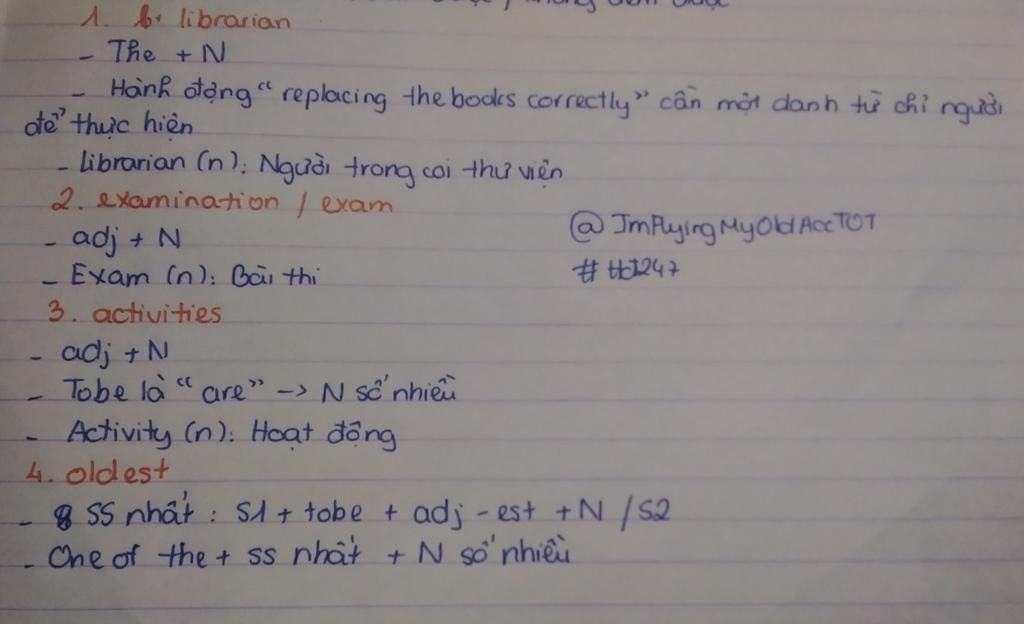 1. b. librarian
- The + N
- Hành động "replacing the books correctly" cần một danh từ chỉ người
để thực hiện
- librarian (n): Người trong coi thư viện
2. examination / exam
- adj + N
- Exam (n): Bài thi
@ImFlyingMyOldAccTOT
3. activities
- adj + N
- Tobe là "are" -> N số nhiều
- Activity (n): Hoạt động
4. oldest
- SS nhất: S1 + tobe + adj - est + N / S2
- One of the + ss nhất + N số nhiều